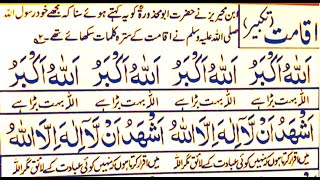 اقامت (تکبیر)
ابن محیریز نے حضرت ابو محذورہؓ کو یہ کہتے ہوئے سنا کہ مجھے خود رسول اللہ
صلی اللہ علیہ وسلم نے اقامت کے سترہ کلمات سکھائے تھے
اَللّٰهُ اَكْبَرُ اَللّٰهُ اَكْبَرُ اَللّٰهُ اَكْبَرُ اَللّٰهُ اَكْبَرُ
اللہ بہت بڑا ہے اللہ بہت بڑا ہے اللہ بہت بڑا ہے اللہ بہت بڑا ہے
اَشْهَدُ اَنْ لَّآ اِلٰهَ اِلَّا اللّٰهُ اَشْهَدُ اَنْ لَّآ اِلٰهَ اِلَّا اللّٰهُ
میں اقرار کرتا ہوں کہ نہیں کوئی عبادت کے لائق مگر اللہ میں اقرار کرتا ہوں کہ نہیں کوئی عبادت کے لائق مگر اللہ